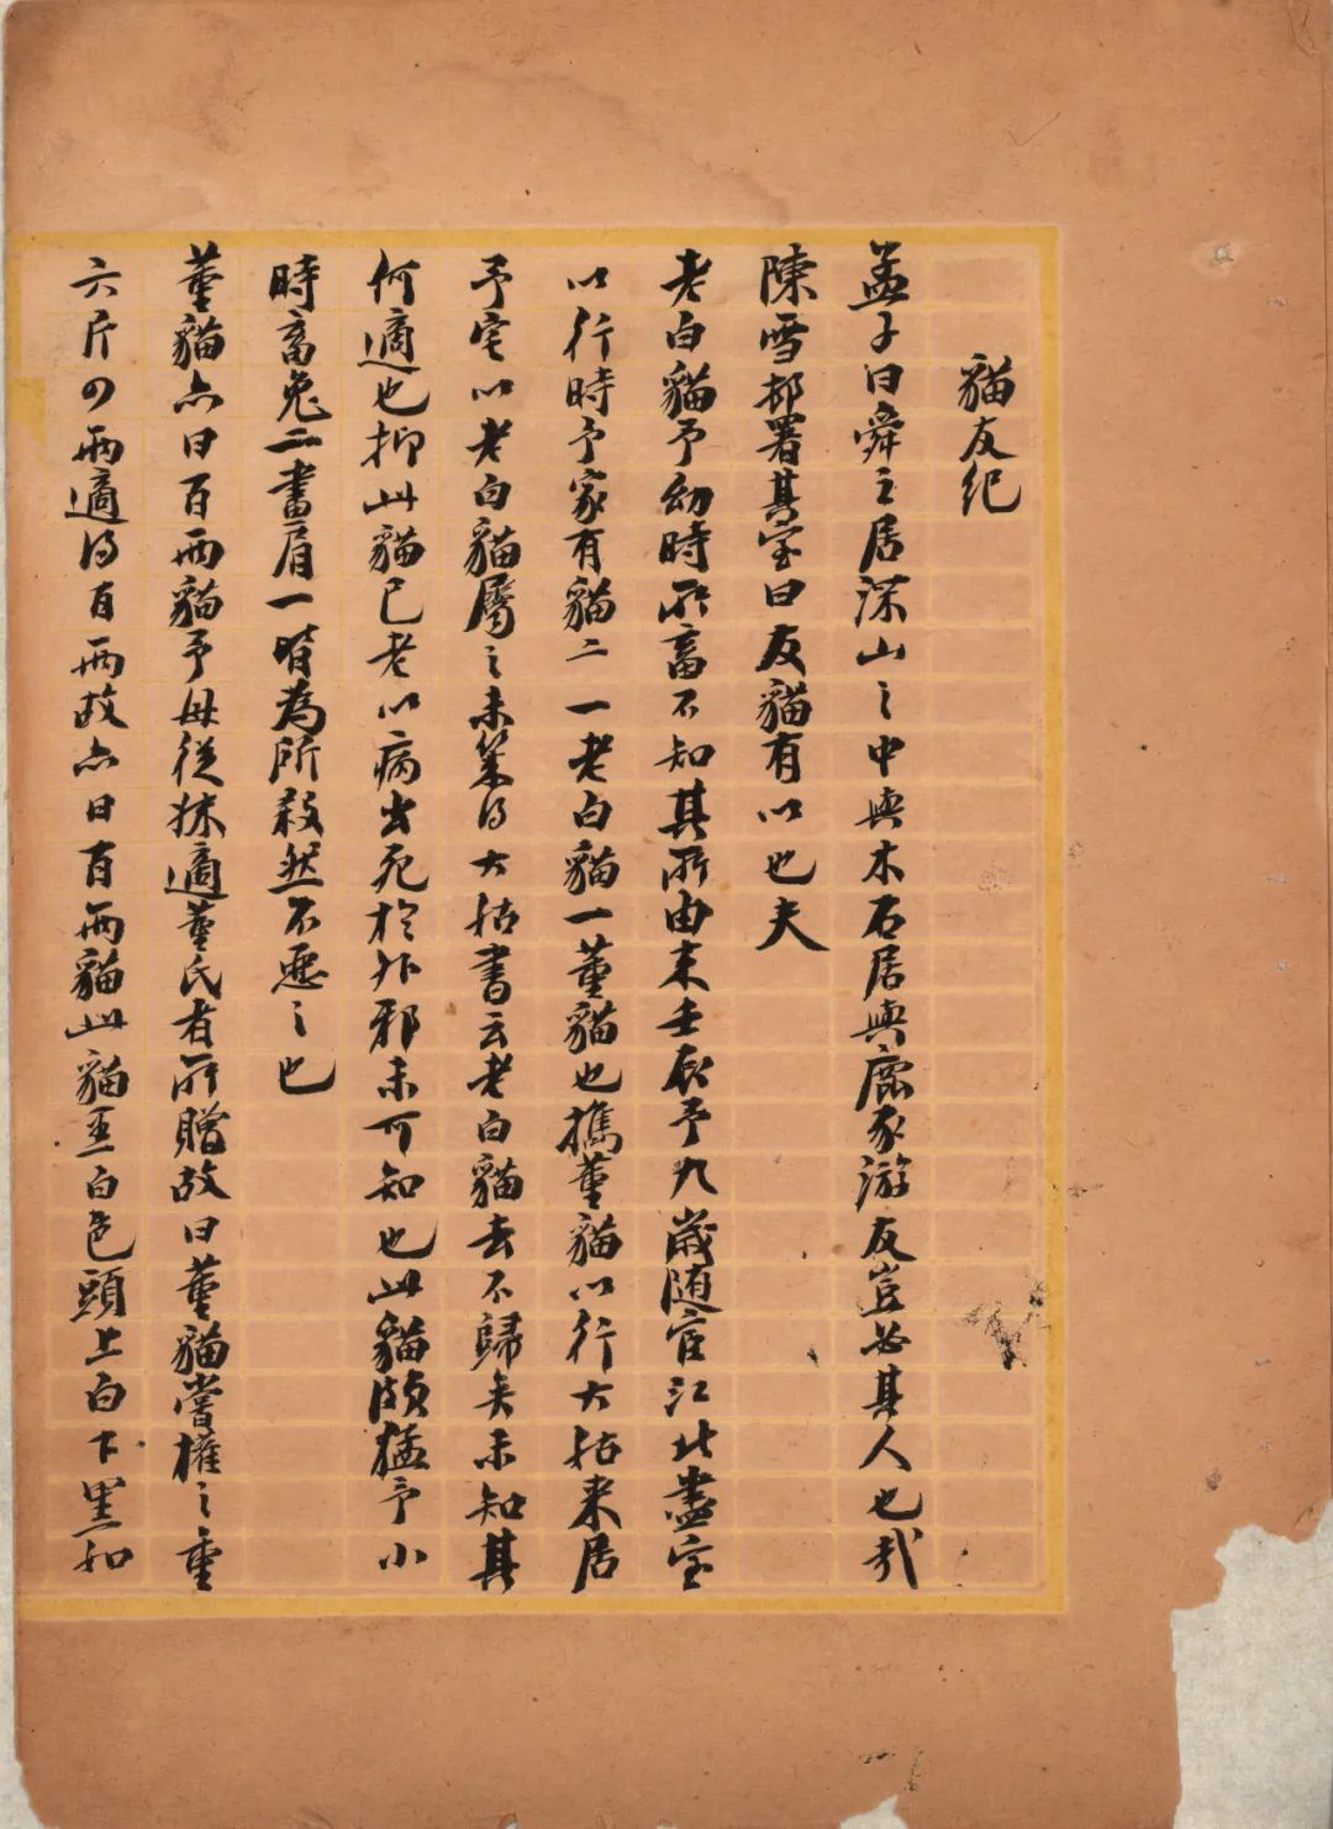 貓友紀
孟子曰舜之居深山之中與木石居與鹿豕游友豈必其人也哉
陳雪邨署其室曰友貓有以也夫
老白貓予幼時所畜不知其所由來壬辰予九歲随宦江北盡室
以行時予家有貓二一老白貓一董貓也攜董貓以行大姑来居
予宅以老白貓屬之未幾得大姑書云老白貓去不歸矣未知其
何適也抑此貓已老以病出死於外邪未可知也此貓頗猛予小
時畜兔二畫眉一皆為所殺然不惡之也
董貓亦曰百两貓予母從妹適董氏者所贈故曰董貓嘗權之重
六斤四两適得百两故亦曰百两貓此貓至白色頭上白下黑如